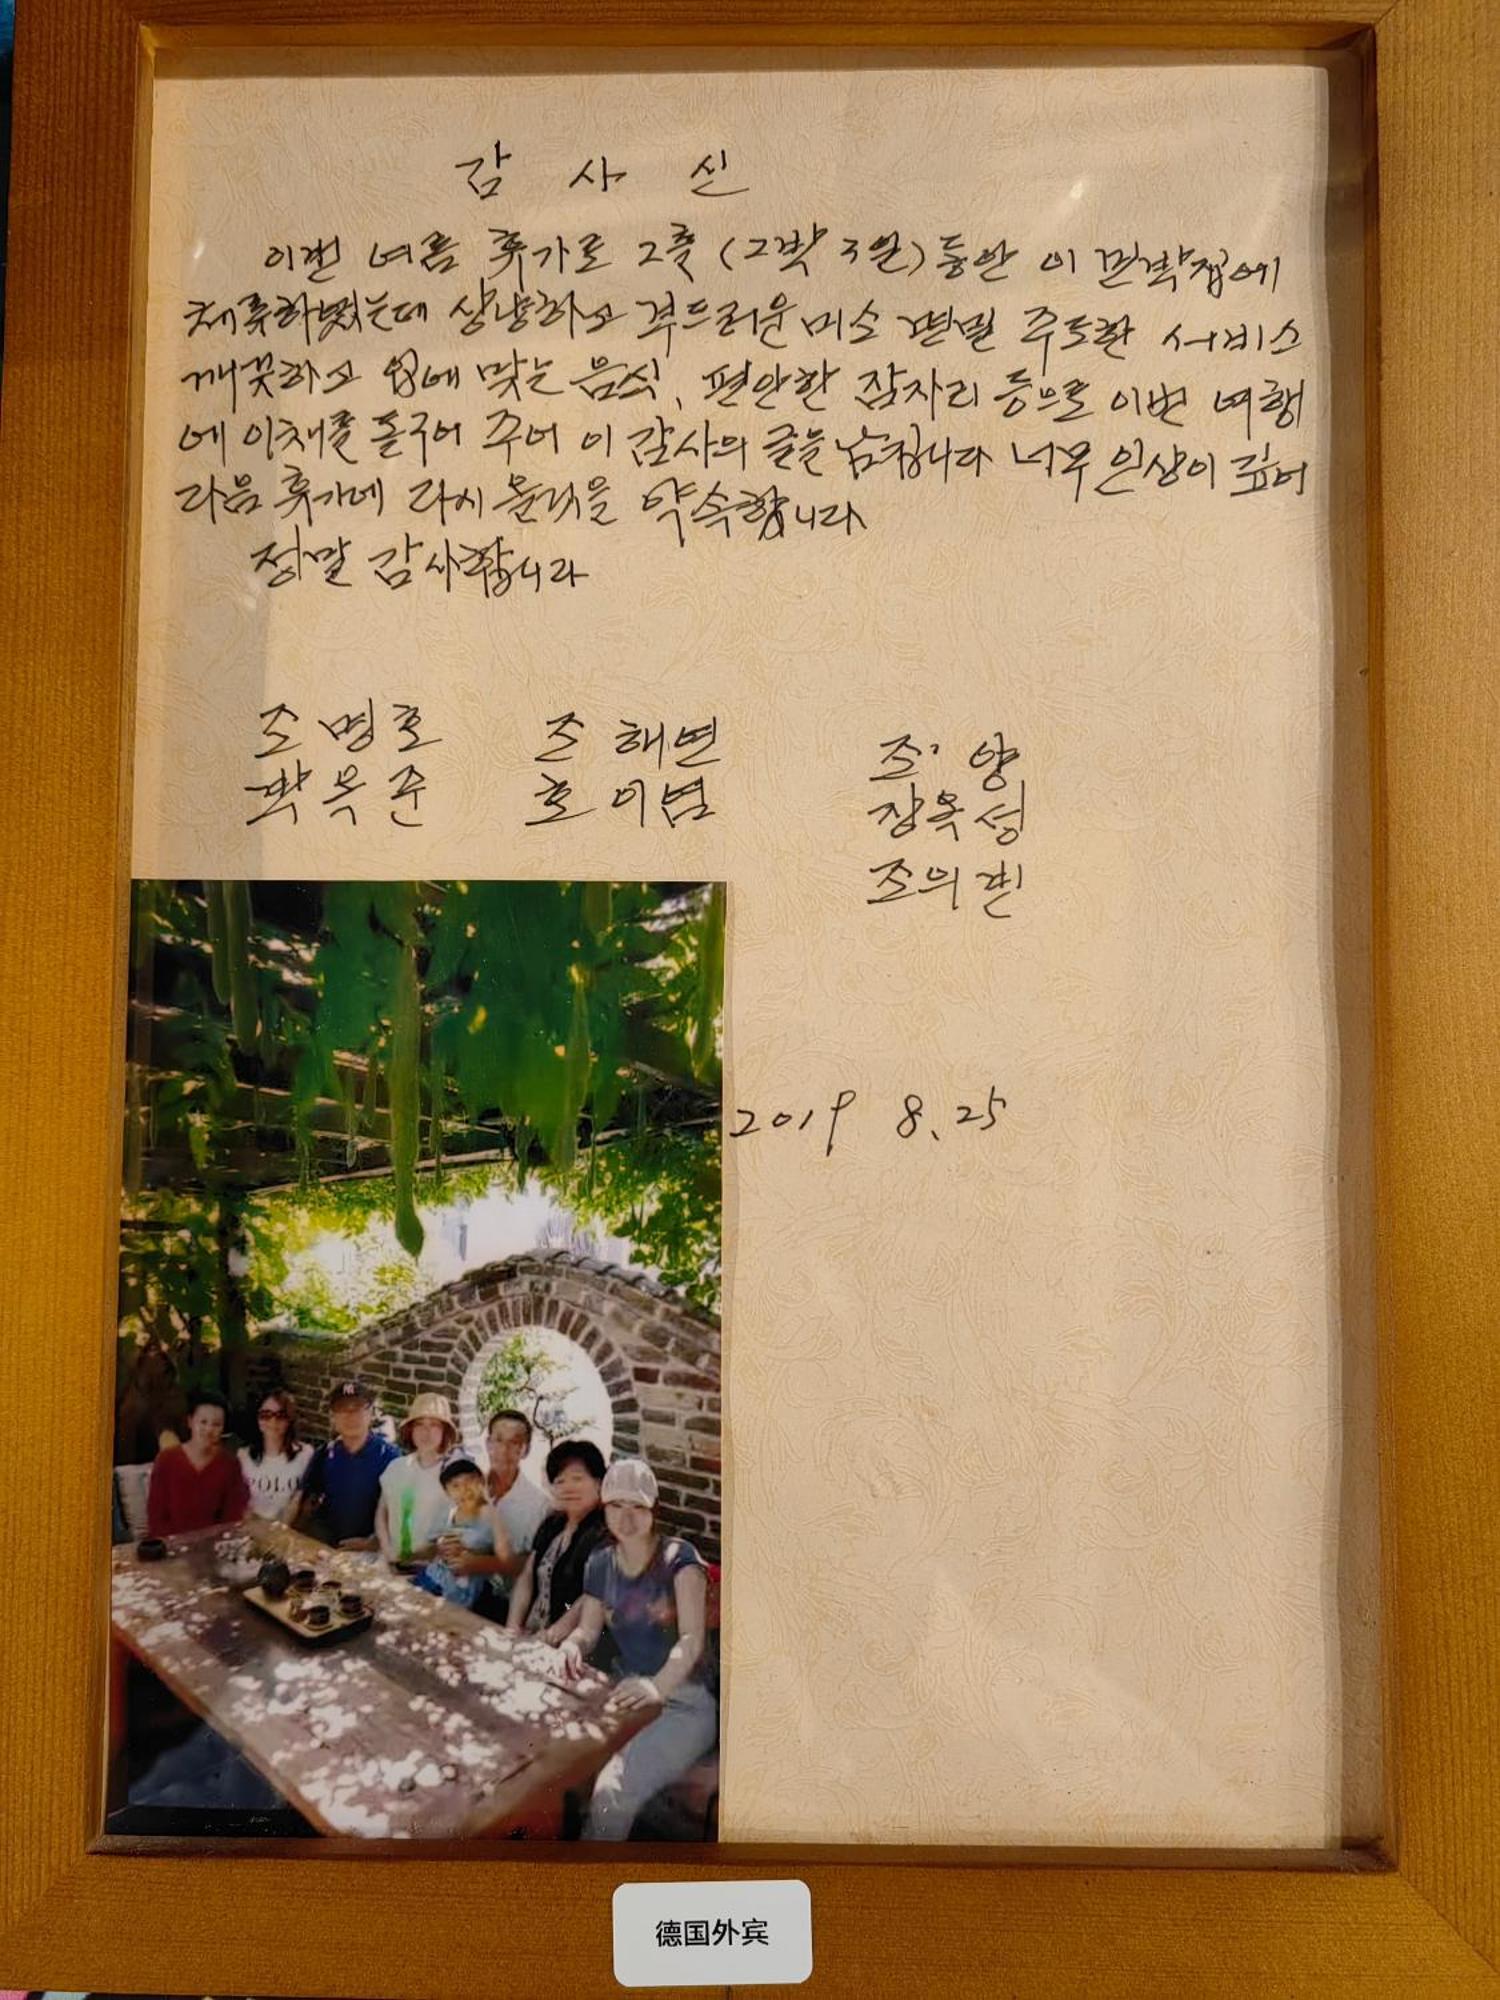 감 사 신
이번 여름 휴가로 2훌 (2박 3일) 동안 이 민박집에
체류하였는데 상냥하고 부드러운 미소 면밀 주도한 서비스
깨끗하고 입에 맞는 음식, 편안한 잠자리 등으로 이번 여행
에 이채를 돋구어 주어 이 감사의 글을 남깁니다 너무 인상이 깊어
다음 휴가에 다시 올것을 약속합니다
정말 감사합니다
조명호 조해연 조 양
박옥준 호이범 장옥성
조의린
2019 8.25
NY
POLO
德国外宾